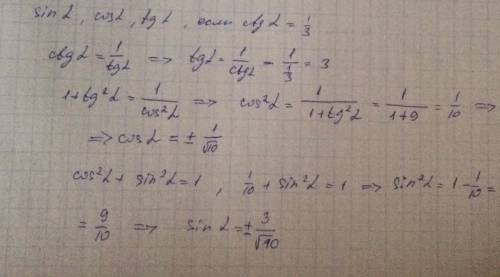 sin α, cos α, tg α, если ctg α = 1/3
ctg α = 1/tg α => tg α = 1/ctg α - 1/(1/3) = 3
1 + tg²α = 1/cos²α => cos²α = 1/(1+tg²α) = 1/(1+9) = 1/10 =>
=> cos α = ± 1/√10
cos²α + sin²α = 1, 1/10 + sin²α = 1 => sin²α = 1 - 1/10 =
= 9/10 => sin α = ± 3/√10